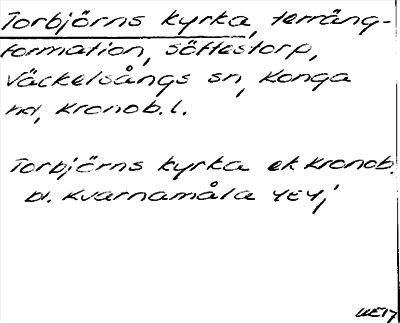 Torbjörns kyrka, terräng-
formation, Söftestorp,
Väckelsångs sn, Konga
hd, Kronob.l.
Torbjörns kyrka ek Kronob.
bl. Kvarnamåla 4E4j